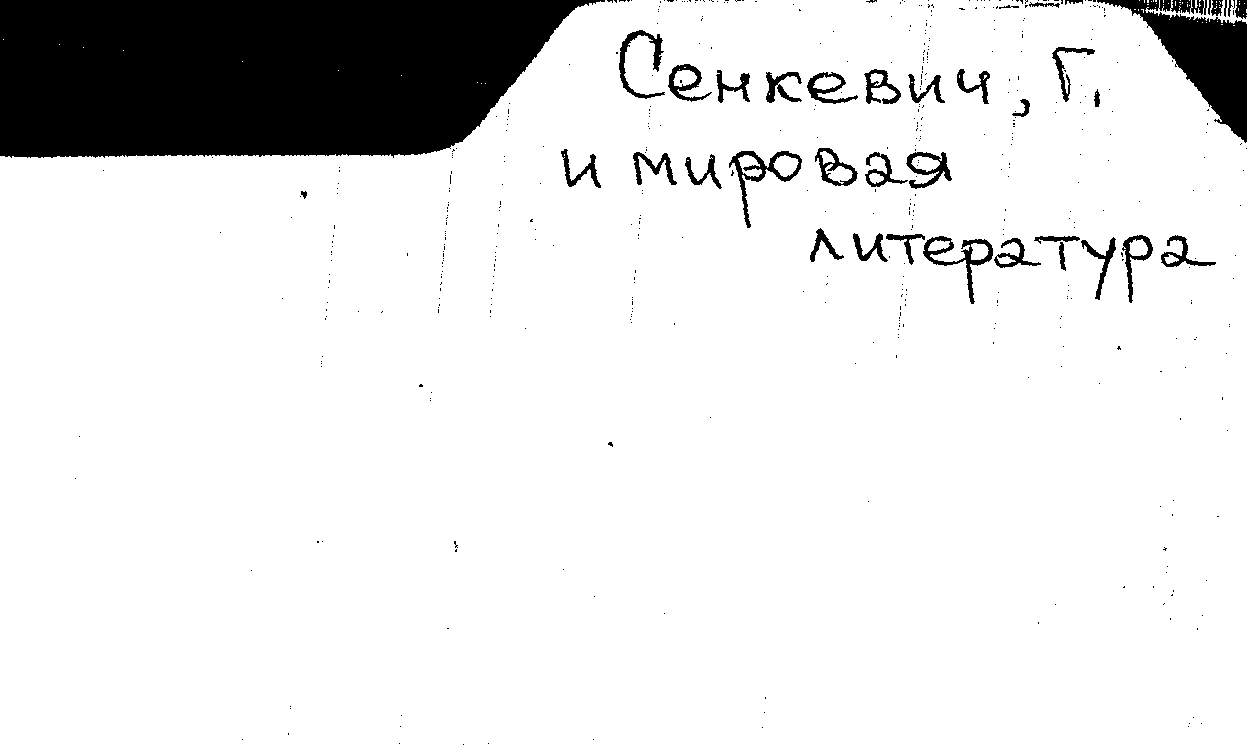 Сенкевич, Г.
и мировая
литература